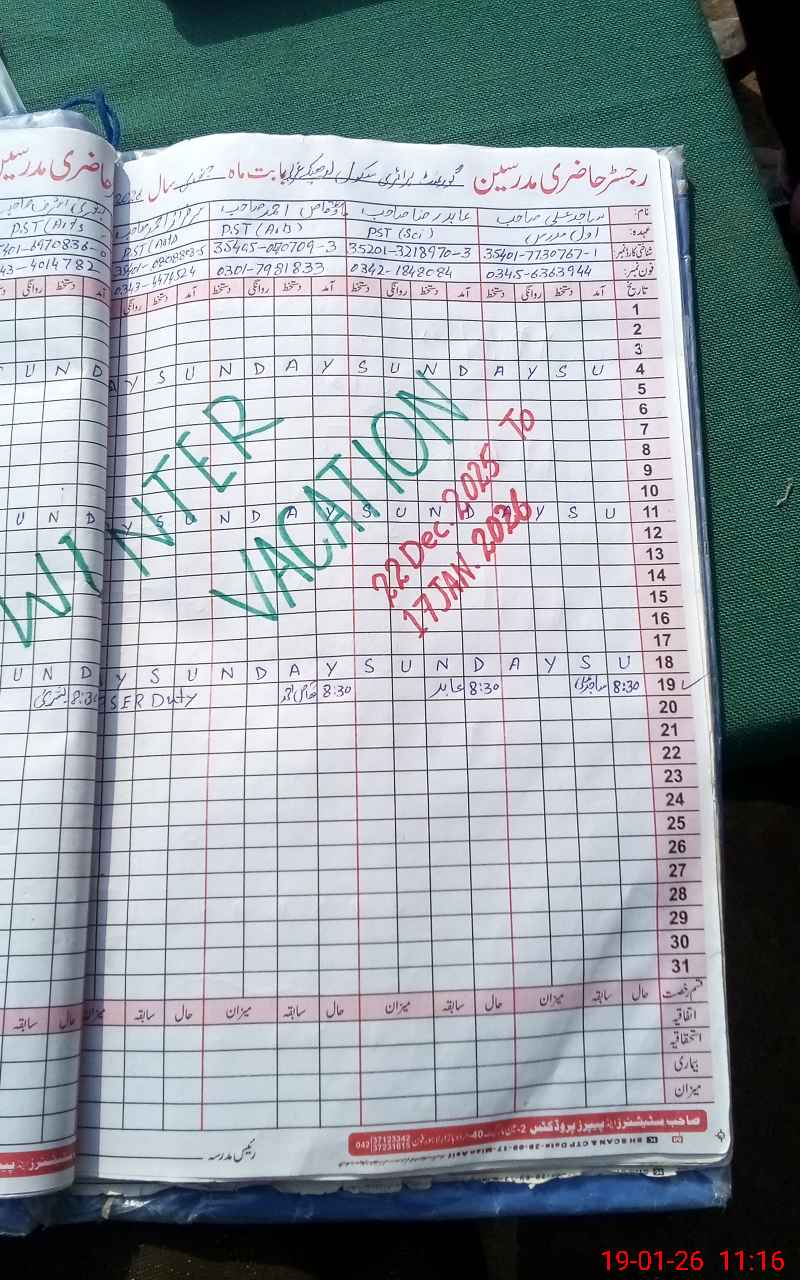 رجسٹر حاضری مدرسین گورنمنٹ پرائمری سکول بابت ماہ جنوری سال 2026
حاضری مدرسین
نام: ساجد علی صاحب عابد رضا صاحب احمد صاحب
عہدہ: اول مدرس PST (Sci) PST (Arts) PST (Arts) PST (Arts
شناختی کارڈ نمبر: 35401-7730767-1 35201-3218970-3
فون نمبر: 0345-6363944 0342-1848084 0301-7981833 0343-4474524 43-4014782
تاریخ آمد دستخط روانگی دستخط آمد دستخط روانگی دستخط آمد دستخط روانگی دستخط آمد دستخط روانگی
1
2
3
4 S U N D A Y S U N D A Y S U N D A Y
5
6
7
8
9
10
11 S U N D A Y S U N D A Y S U N D A Y
12
13
14
15
16
17
18 S U N D A Y S U N D A Y S U N D A Y
WINTER
VACATION
22 Dec. 2025 To
17 JAN. 2026
19 8:30 ساجد علی 8:30 عابد 8:30 SER Duty 8:30
20
21
22
23
24
25
26
27
28
29
30
31
قسم رخصت حال سابقہ میزان حال سابقہ میزان حال سابقہ میزان حال سابقہ میزان حال سابقہ
اتفاقیہ
استحقاقیہ
بیماری
میزان
صاحب سٹیشنرز اینڈ پیپرز پروڈکٹس
042 37123342
37231615
رئیس مدرسہ
19-01-26 11:16